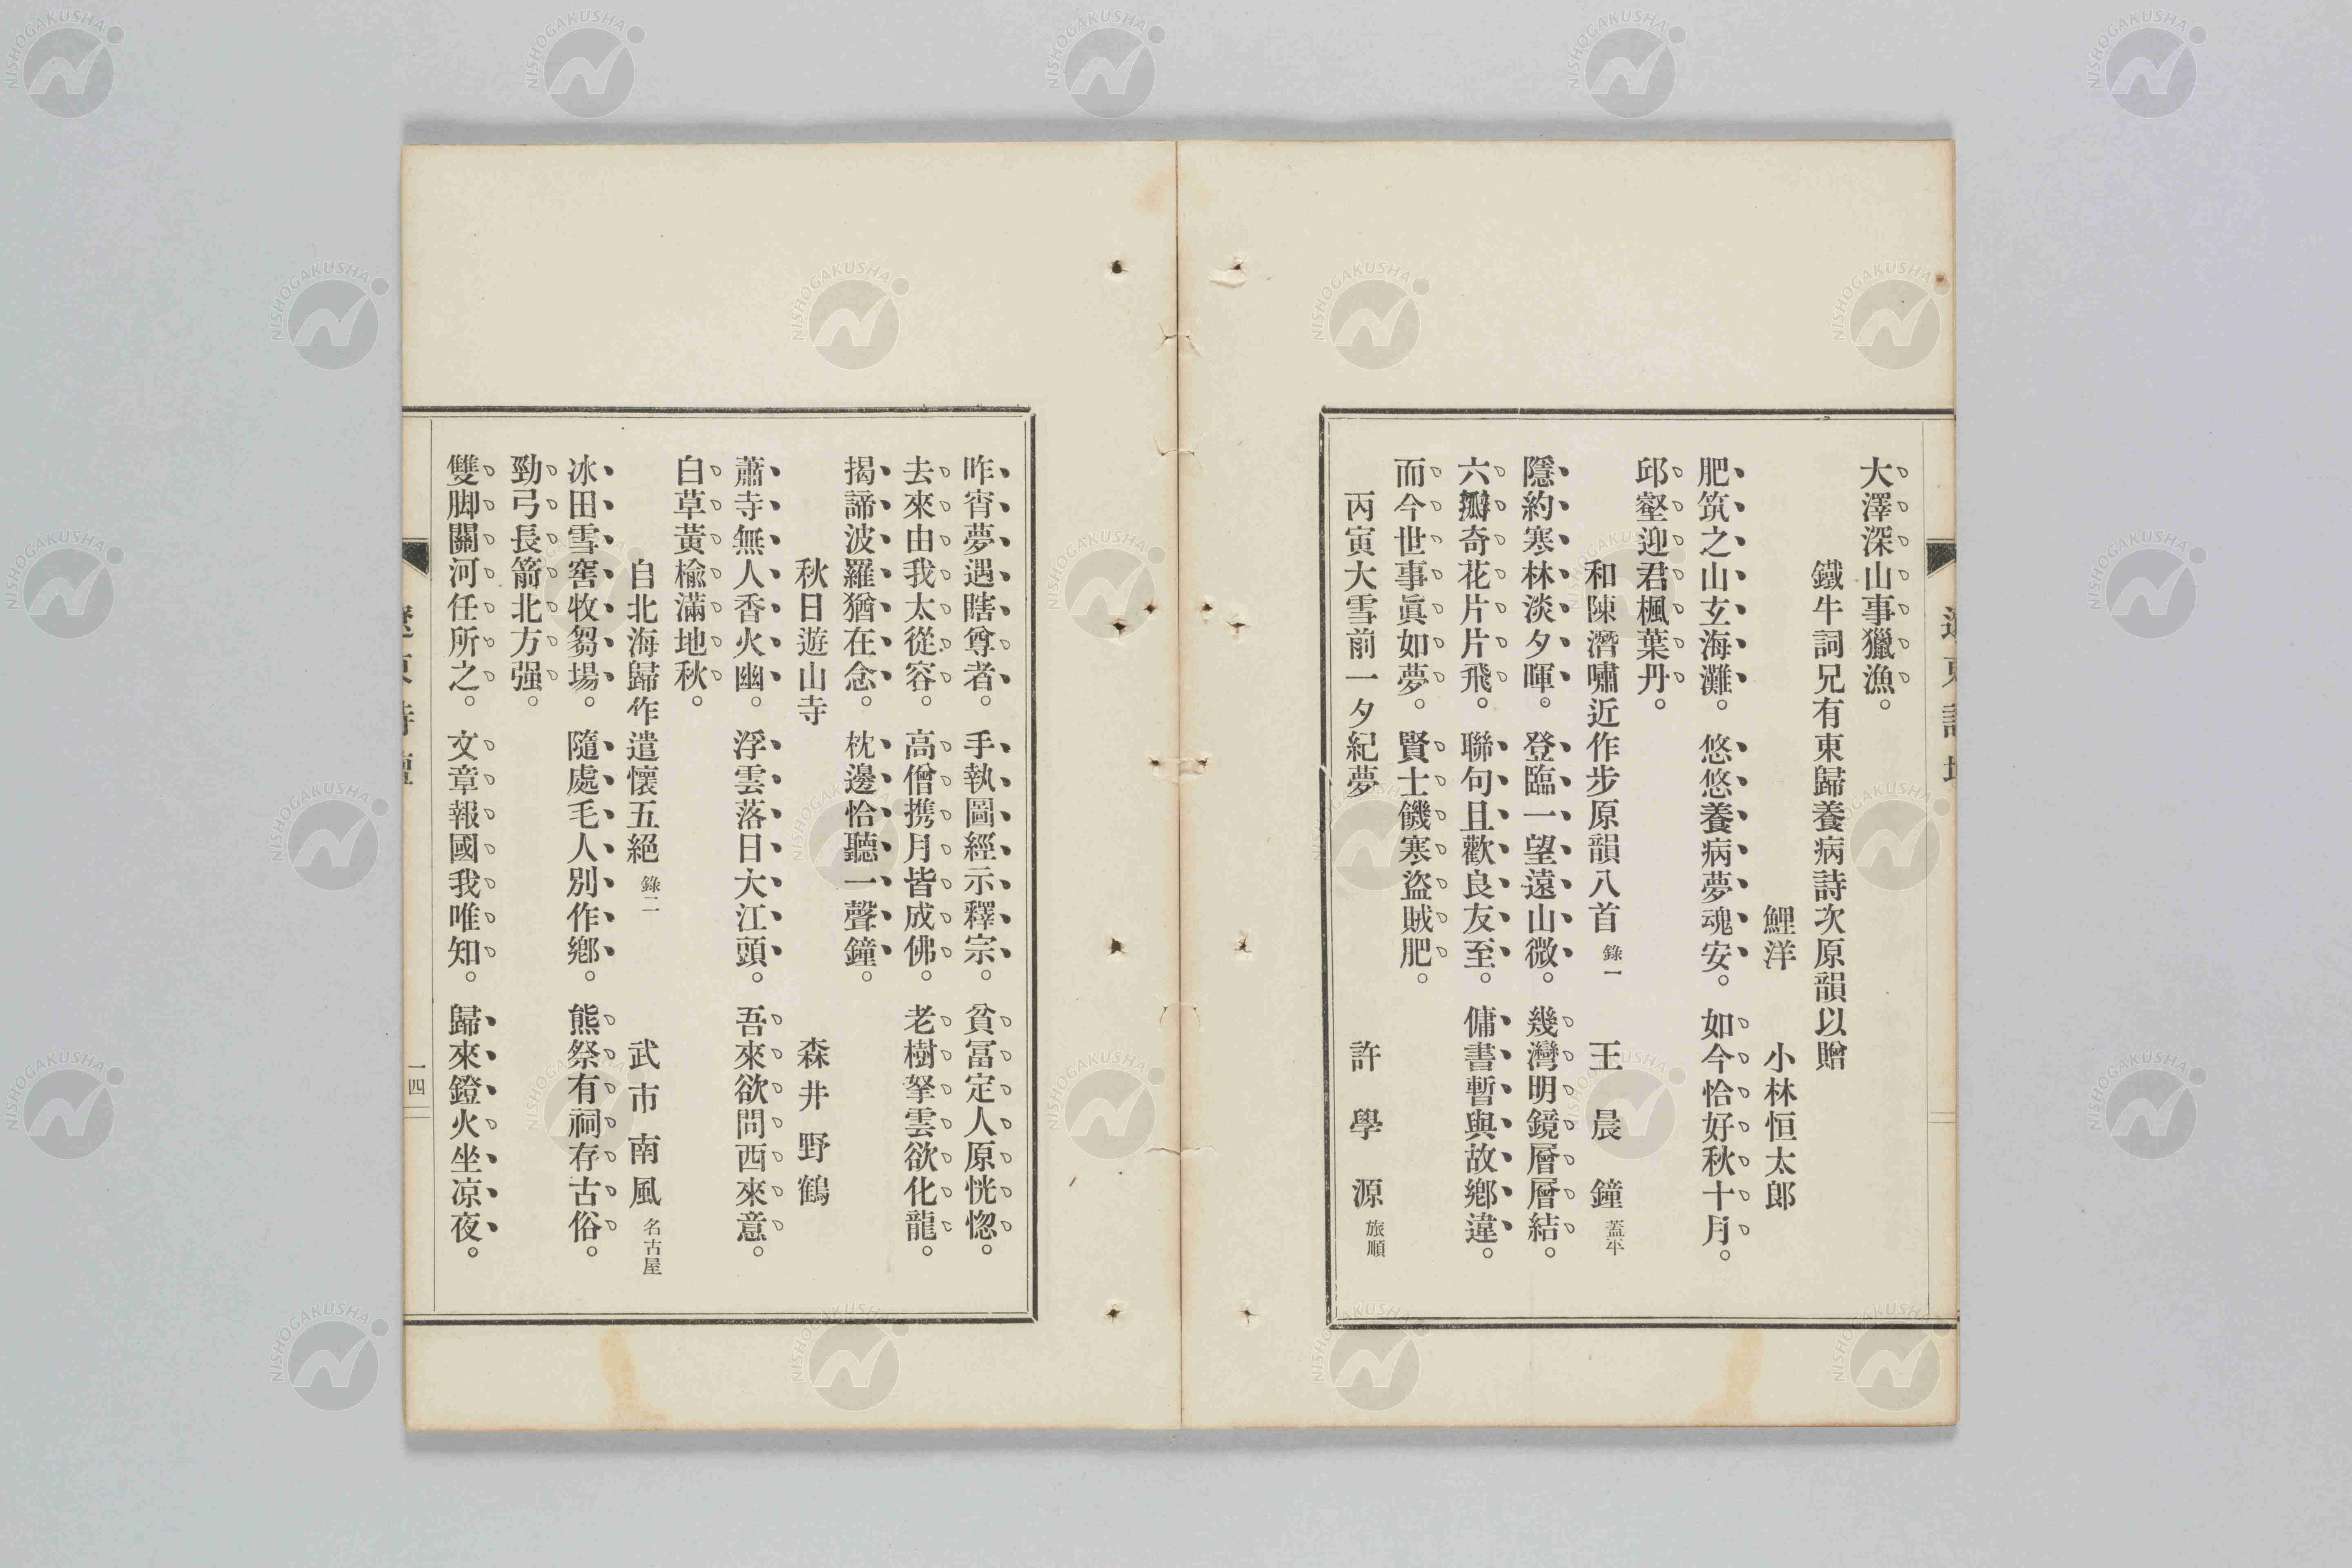 大澤深山事獵漁。
鐵牛詞兄有東歸養病詩次原韻以贈
鯉洋 小林恒太郎
肥筑之山玄海灘。悠悠養病夢魂安。如今恰好秋十月。
邱壑迎君楓葉丹。
和陳濳嘯近作步原韻八首 錄一 王晨鐘 蓋平
隱約寒林淡夕暉。登臨一望遠山微。幾灣明鏡層層結。
六瓣奇花片片飛。聯句且歡良友至。傭書暫與故鄉違。
而今世事眞如夢。賢士饑寒盜賊肥。
丙寅大雪前一夕紀夢 許學源 旅順
昨宵夢遇瞎尊者。手執圖經示釋宗。貧富定人原恍惚。
去來由我太從容。高僧携月皆成佛。老樹拏雲欲化龍。
揭諦波羅猶在念。枕邊恰聽一聲鐘。
秋日遊山寺 森井野鶴
蕭寺無人香火幽。浮雲落日大江頭。吾來欲問西來意。
白草黃楡滿地秋。
自北海歸作遣懷五絕 錄二 武市南風 名古屋
冰田雪窖牧芻場。隨處毛人別作鄉。熊祭有祠存古俗。
勁弓長箭北方强。
雙脚關河任所之。文章報國我唯知。歸來鐙火坐凉夜。
一四
NISHOGAKUSHA